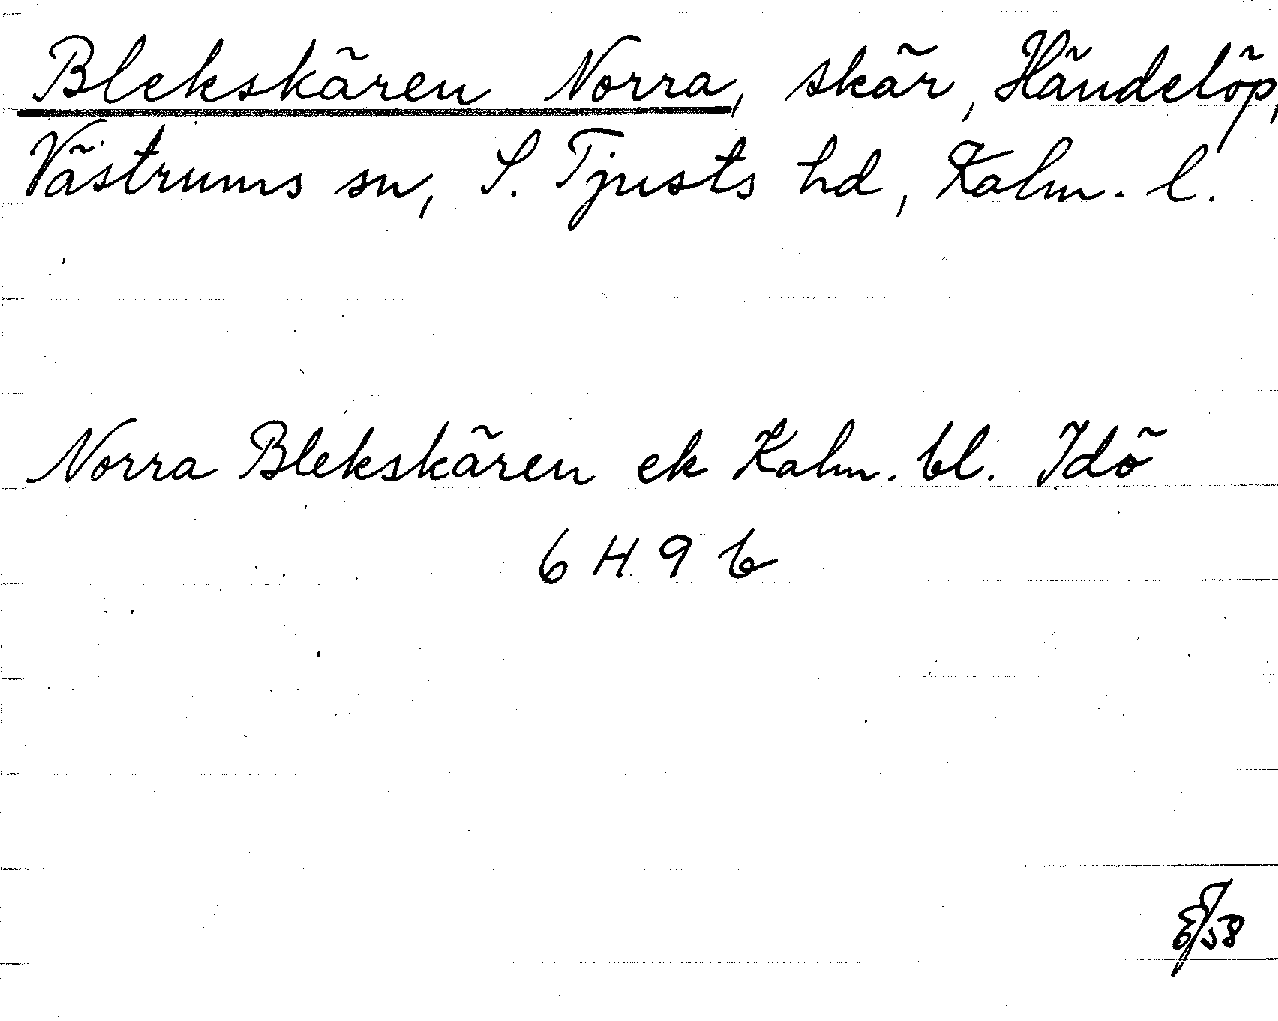 Blekskären Norra, skär, Händelöp,
Västrums sn, S. Tjusts hd, Kalm. l.
Norra Blekskären ek Kalm. bl. Idö
6 H 9 b